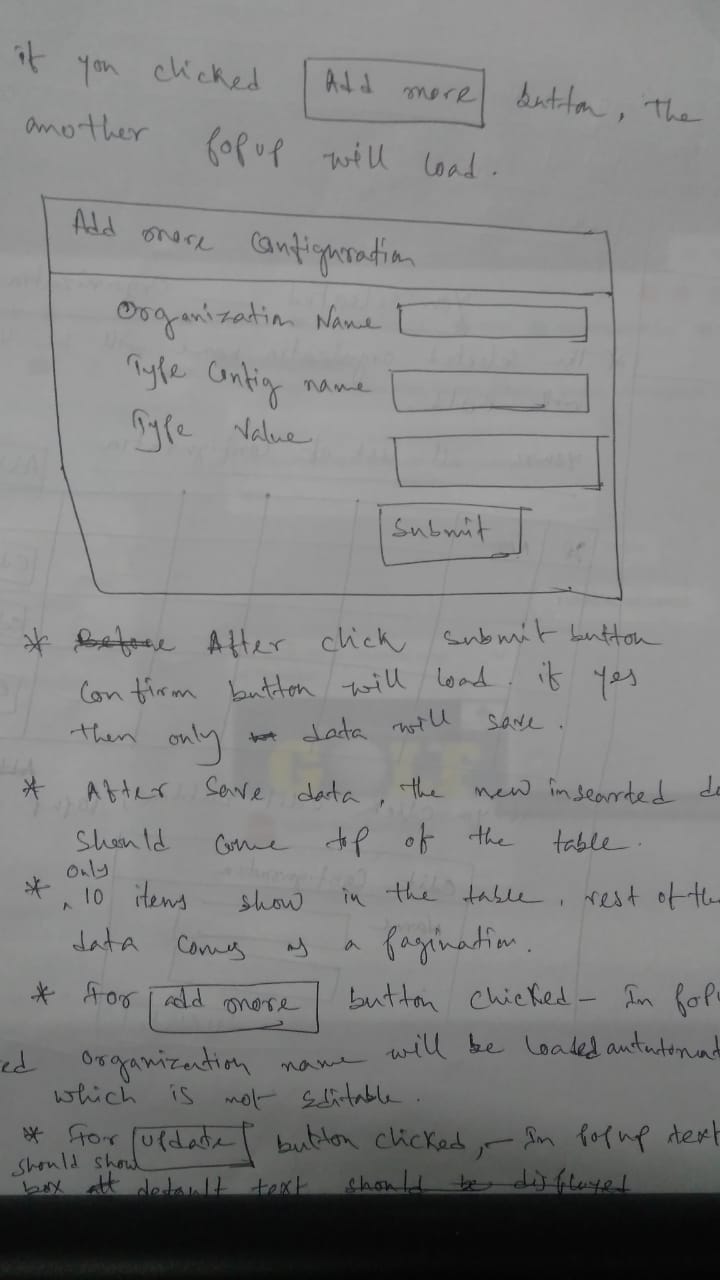 if you clicked Add more button, the
another popup will load.
Add more Configuration
Organization Name
Type Config name
Type Value
Submit
* Before After click submit button
Confirm button will load. if yes
then only data will save.
* After Save data, the new insearted da
should come top of the table.
only
* 10 items show in the table, rest of the
data comes as a pagination.
* for add more button clicked - In popu
ed organization name will be loaded automat
which is not editable.
* for update button clicked, - In popup text
should show
box default text should be displayed